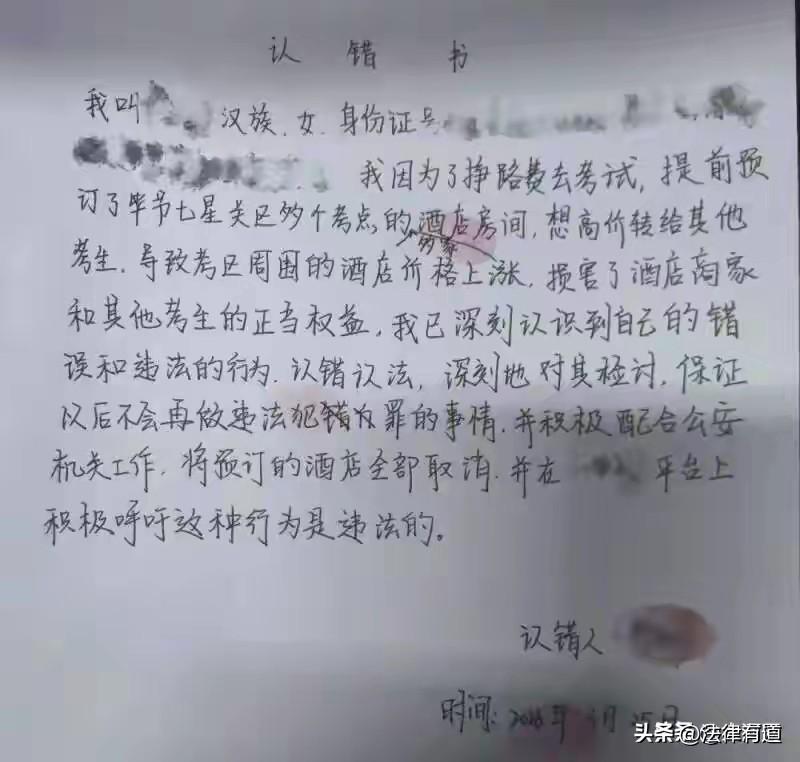 认错书
我叫 汉族.女.身份证号
我因为了挣路费去考试,提前预
订了毕节七星关区多个考点的酒店房间,想高价转给其他
商家
考生.导致考区周围的酒店价格上涨.损害了酒店商家
和其他考生的正当权益,我已深刻认识到自己的错
误和违法的行为.认错认法,深刻地对其检讨,保证
以后不会再做违法犯错 罪的事情.并积极配合公安
机关工作.将预订的酒店全部取消.并在 平台上
积极呼吁这种行为是违法的。
认错人
时间: 年 月25日
头条@法律有道